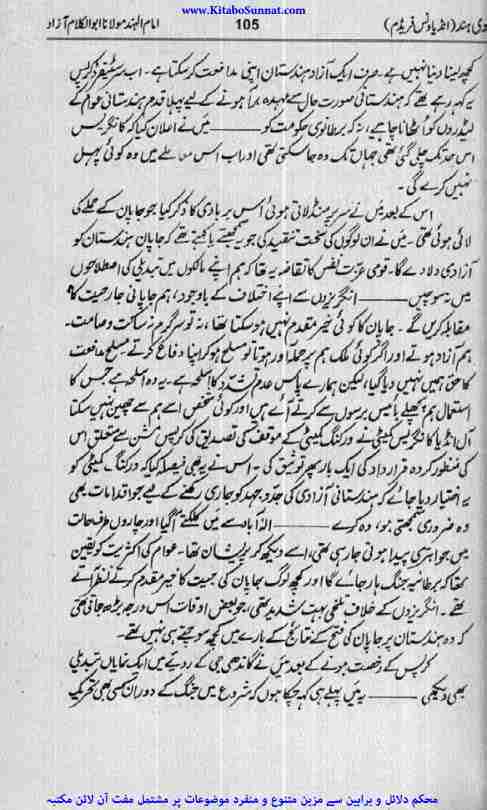 www.KitaboSunnat.com
دی ہند (انڈیا ونس فریڈم) 105 امام الہند مولانا ابوالکلام آزاد
کچھ لینا دینا نہیں ہے۔ صرف ایک آزاد ہندستان اپنی مدافعت کر سکتا ہے۔ اب سر سٹیفرڈ کرپس
یہ کہہ رہے تھے کہ ہندستانی صورت حال سے عہدہ برآ ہونے کے لیے پہلا قدم ہندستانی عوام کے
لیڈروں کو اٹھانا چاہیے، نہ کہ برطانوی حکومت کو ——— میں نے اعلان کیا کہ کانگریس
اس حد تک چلی گئی تھی جہاں تک وہ جا سکتی تھی اور اب اس معاملے میں وہ کوئی پہل
نہیں کرے گی۔
اس کے بعد میں نے سر پر منڈلاتی ہوئی اس بربادی کا ذکر کیا جو جاپان کے حملے کی
لائی ہوئی تھی۔ میں نے ان لوگوں کی سخت تنقید کی جو یہ سمجھتے یا کہتے تھے کہ جاپان ہندستان کو
آزادی دلا دے گا۔ قومی عزت نفس کا تقاضہ یہ تھا کہ ہم اپنے مالکوں میں تبدیلی کی اصطلاحوں
میں نہ سوچیں ——— انگریزوں سے اپنے اختلاف کے باوجود، ہم جاپانی جارحیت کا
مقابلہ کریں گے۔ جاپان کا کوئی خیر مقدم نہیں ہو سکتا تھا، نہ تو سرگرم نہ ساکت و صامت۔
ہم آزاد ہوتے اور اگر کوئی ملک ہم پر حملہ آور ہوتا تو مسلح ہو کر اپنا دفاع کرتے مسلح مدافعت
کا حق ہمیں نہیں دیا گیا، لیکن ہمارے پاس عدم تشدد کا اسلحہ ہے۔ یہ وہ اسلحہ ہے جس کا
استعمال ہم پچھلے بائیس برسوں سے کرتے آئے ہیں اور کوئی شخص اسے ہم سے چھین نہیں سکتا
آل انڈیا کانگریس کمیٹی نے ورکنگ کمیٹی کے موقف کی تصدیق کی کرپس مشن سے متعلق اس
کی منظور کردہ قرارداد کی ایک بار پھر توثیق کی۔ اس نے یہ بھی فیصلہ کیا کہ ورکنگ کمیٹی کو
یہ اختیار دیا جائے کہ ہندستانی آزادی کی جدوجہد کو جاری رکھنے کے لیے جو اقدامات بھی
وہ ضروری سمجھتی ہو، وہ کرے ——— الہ آباد سے میں کلکتے آگیا اور چاروں طرف حالات
میں جو ابتری پیدا ہوتی جا رہی تھی، اسے دیکھ کر پریشان تھا۔ عوام کی اکثریت کو یقین
تھا کہ برطانیہ جنگ ہار جائے گا اور کچھ لوگ جاپان کی جیت کا خیر مقدم کرتے نظر آتے
تھے۔ انگریزوں کے خلاف تلخی بہت شدید تھی، جو بعض اوقات اس درجہ بڑھ جاتی تھی
کہ وہ ہندستان پر جاپان کی فتح کے نتائج کے بارے میں کچھ سوچتے ہی نہیں تھے۔
کرپس کے رخصت ہونے کے بعد میں نے گاندھی جی کے رویے میں ایک نمایاں تبدیلی
بھی دیکھی ——— یہ میں پہلے ہی کہہ چکا ہوں کہ شروع میں جنگ کے دوران کسی بھی تحریک
محکم دلائل و براہین سے مزین متنوع و منفرد موضوعات پر مشتمل مفت آن لائن مکتبہ